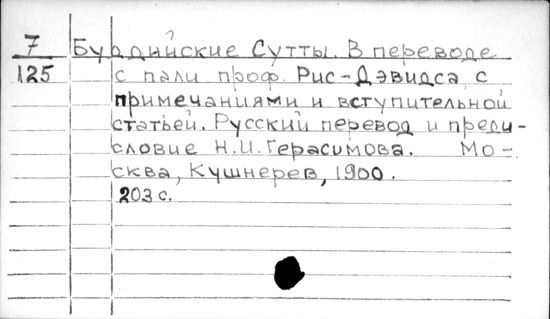 7 Буддийские Сутты. В переводе
125 с пали проф. Рис-Дэвидса, с
примечаниями и вступительной
статьей. Русский перевод и преди-
словие Н.И. Герасимова. Мо-
сква, Кушнерев, 1900.
203 с.